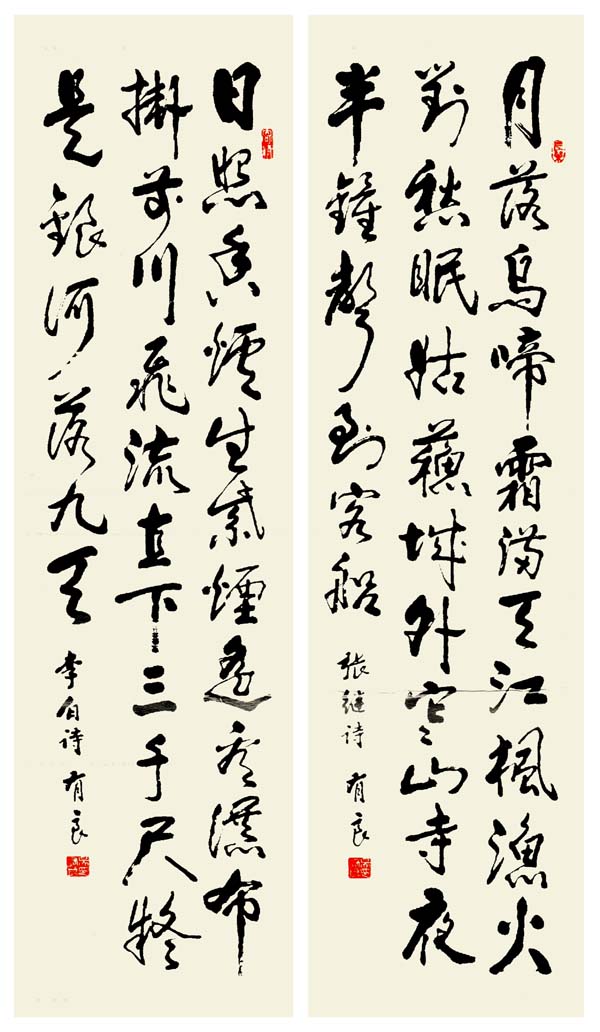 月落烏啼霜满天江楓漁火
對愁眠姑蘇城外寒山寺夜
半鐘聲到客船
張继诗 有良
日照香爐生紫煙遥看瀑布
掛前川飛流直下三千尺疑
是銀河落九天
李白诗 有良